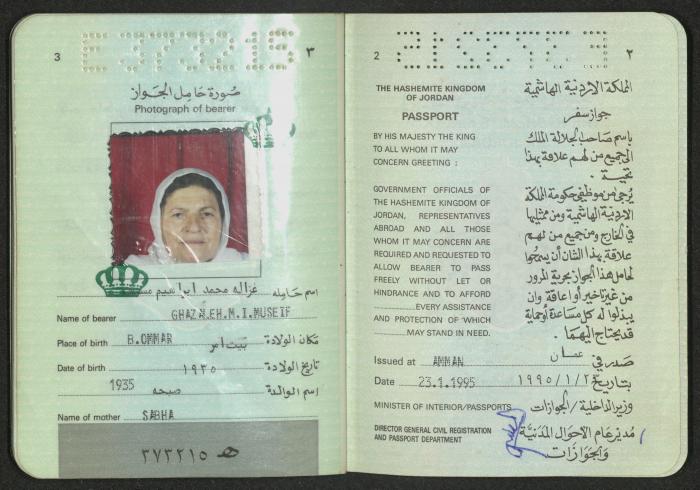 3
E 373215
٣
صورة حامل الجواز
Photograph of bearer
اسم حامله غزاله محمد ابراهيم
Name of bearer GHAZALEH.M.I.MUSEIF
مكان الولادة بيت امر
Place of birth B.OMMAR
Date of birth ١٩٣٥ تاريخ الولادة
1935
اسم الوالدة صبحه
Name of mother SABHA
ه‍ ٣٧٣٢١٥
2
٢
THE HASHEMITE KINGDOM
OF JORDAN
PASSPORT
BY HIS MAJESTY THE KING
TO ALL WHOM IT MAY
CONCERN GREETING :
GOVERNMENT OFFICIALS OF
THE HASHEMITE KINGDOM OF
JORDAN, REPRESENTATIVES
ABROAD AND ALL THOSE
WHOM IT MAY CONCERN ARE
REQUIRED AND REQUESTED TO
ALLOW BEARER TO PASS
FREELY WITHOUT LET OR
HINDRANCE AND TO AFFORD
................EVERY ASSISTANCE
AND PROTECTION OF WHICH
................MAY STAND IN NEED.
المملكة الاردنية الهاشمية
جواز سفر
باسم صاحب الجلالة الملك
الى جميع من لهم علاقة بهذا
تحية .
يُرجى من موظفي حكومة المملكة
الاردنية الهاشمية ومن ممثليها
في الخارج ومن جميع من لهم
علاقة بهذا الشأن أن يسمحوا
لحامل هذا الجواز بحرية المرور
من غير تأخير أو اعاقة وان
يبذلوا له كل مساعدة أو حماية
قد يحتاج اليهما .
Issued at AMMAN عمان صدر في
Date 23.1.1995 بتاريخ
MINISTER OF INTERIOR/PASSPORTS وزير الداخلية/الجوازات
DIRECTOR GENERAL CIVIL REGISTRATION
AND PASSPORT DEPARTMENT
مدير عام الاحوال المدنية
والجوازات